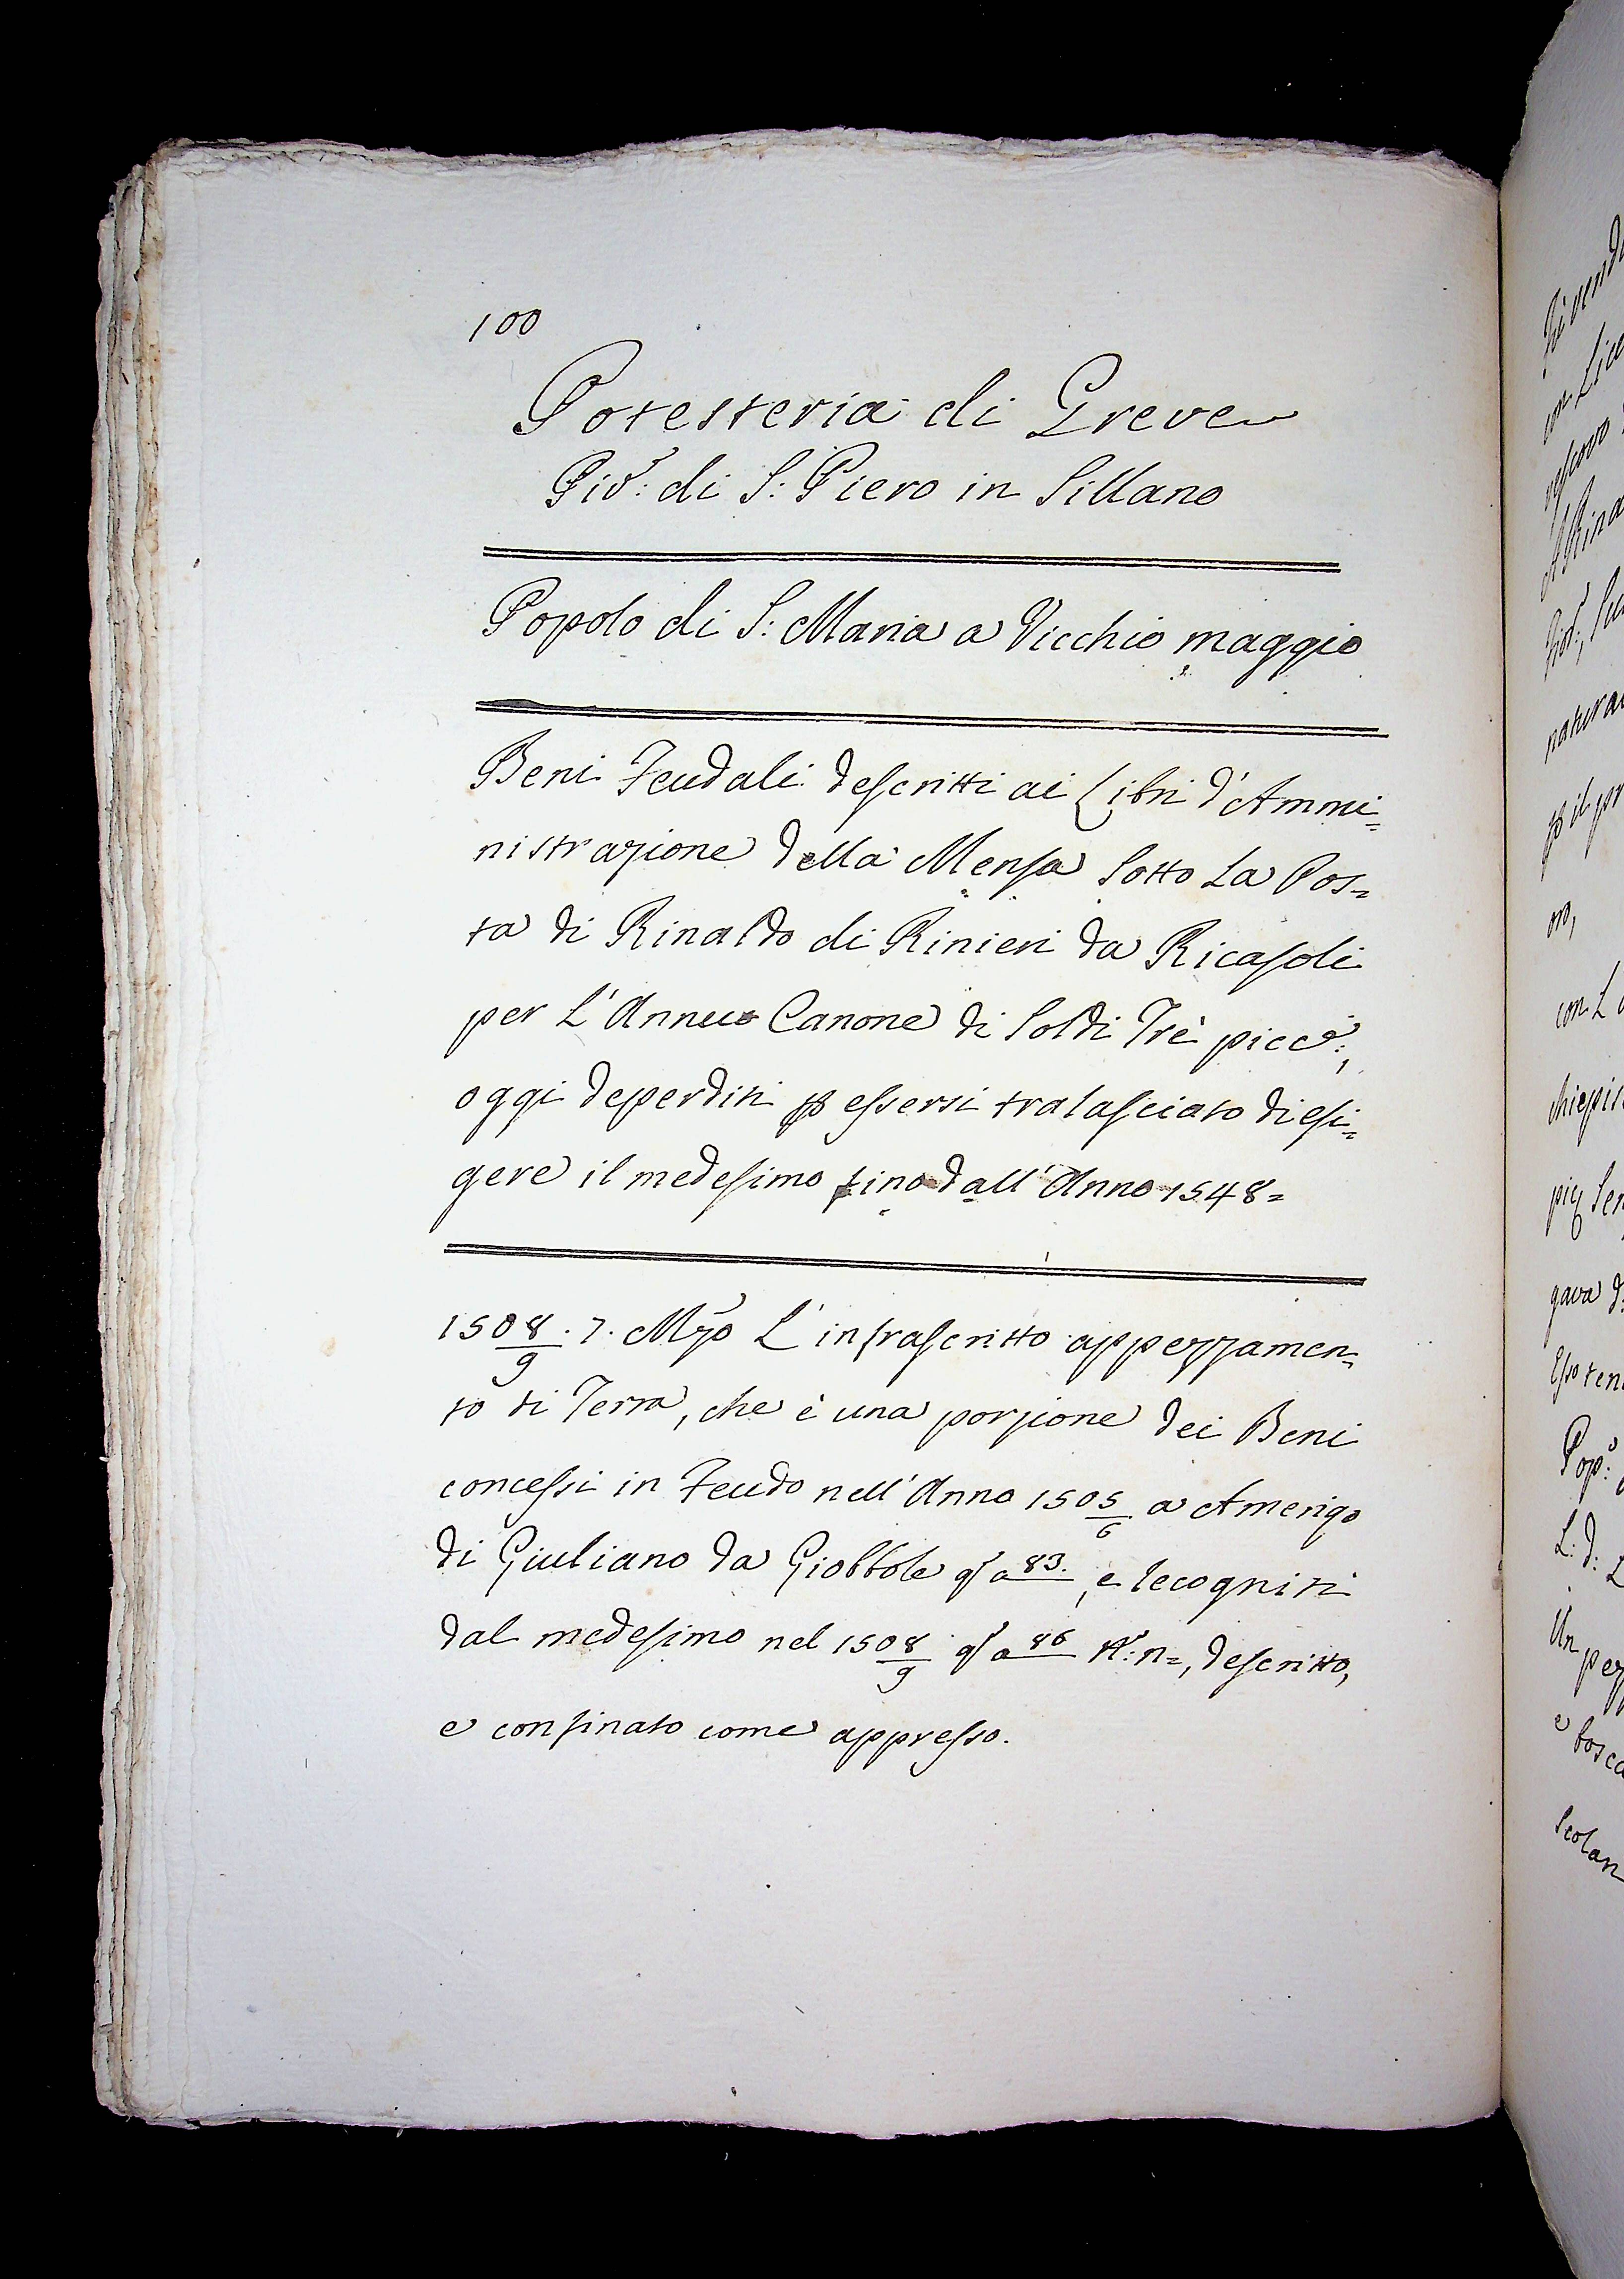 100
Potesteria di Greve
Piv:ᵉ di S: Piero in Sillano
Popolo di S: Maria a Vicchio maggio
Beni Feudali descritti ai Libri d'Ammi=
nistrazione della Mensa Sotto La Pos=
ta di Rinaldo di Rinieri da Ricasoli
per L'Annuo Canone di Soldi Trè picc:ⁱ,
oggi deperditi p essersi tralasciato di esi=
gere il medesimo fino dall'Anno 1548=
1508/9. 7. Mzo L'infrascritto appezzamen=
to di Terra, che è una porzione dei Beni
concessi in Feudo nell'Anno 1505/6 a Amerigo
di Giuliano da Giobbole qf a 83., e recogniti
dal medesimo nel 1508/9 qf a 86 N:n=, descritto,
e confinato come appresso.
con L
Pop:º
L: d: L
Un pez
e bosca
Scolar